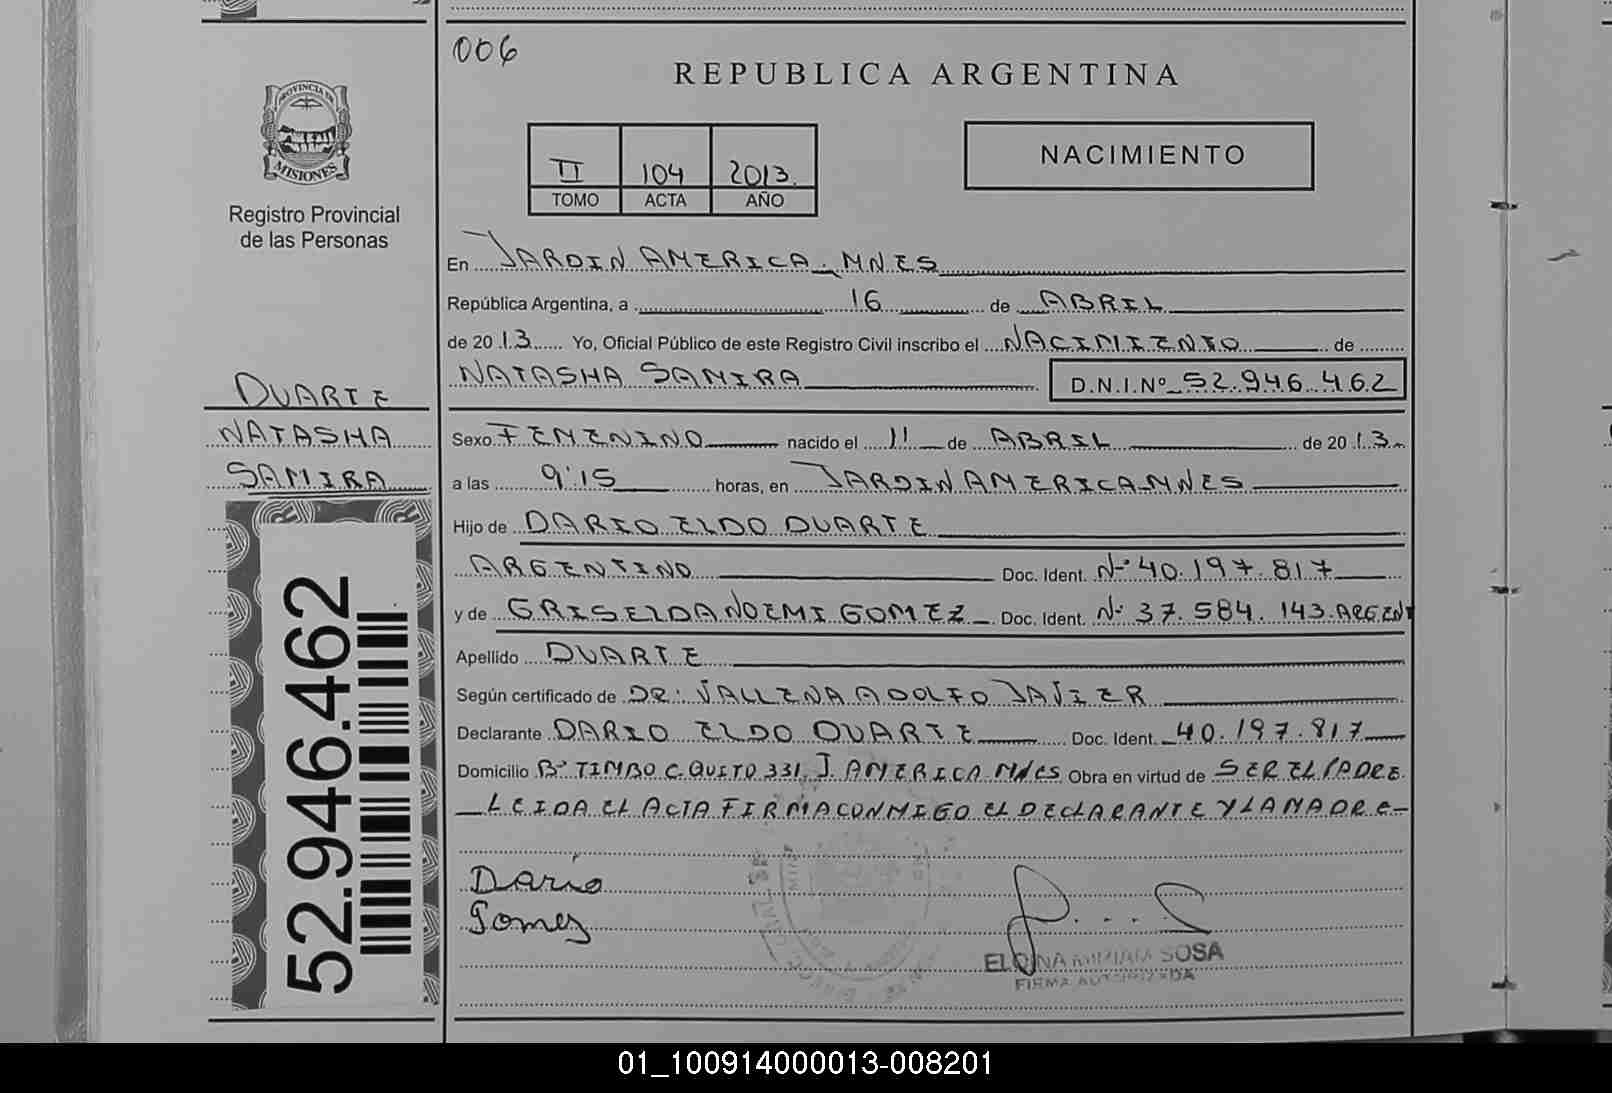 006
REPUBLICA ARGENTINA
PROVINCIA DE
MISIONES
Registro Provincial
de las Personas
II 104 2013.
TOMO ACTA AÑO
NACIMIENTO
En JARDIN AMERICA. MNES
República Argentina, a 16 de ABRIL
de 2013 Yo, Oficial Público de este Registro Civil inscribo el NACIMIENTO de
NATASHA SAMIRA D.N.I.Nº 52.946.462
DUARTE
NATASHA
SAMIRA
52.946.462
Sexo FEMENINO nacido el 11 de ABRIL de 2013
a las 9:15 horas, en JARDIN AMERICA MNES
Hijo de DARIO ELDO DUARTE
ARGENTINO Doc. Ident. Nº 40.197.817
y de GRISELDA NOEMI GOMEZ Doc. Ident. Nº 37.584.143. ARGENT
Apellido DUARTE
Según certificado de DR: VALLENA ADOLFO JAVIER
Declarante DARIO ELDO DUARTE Doc. Ident. 40.197.817
Domicilio Bº TIMBO C. QUITO 331. J. AMERICA Mnes Obra en virtud de SER EL PADRE.
LEIDA EL ACTA FIRMA CONMIGO EL DECLARANTE Y LA MADRE
Dario
Gomez
MIRIAM SOSA
FIRMA AUTORIZADA
01_100914000013-008201